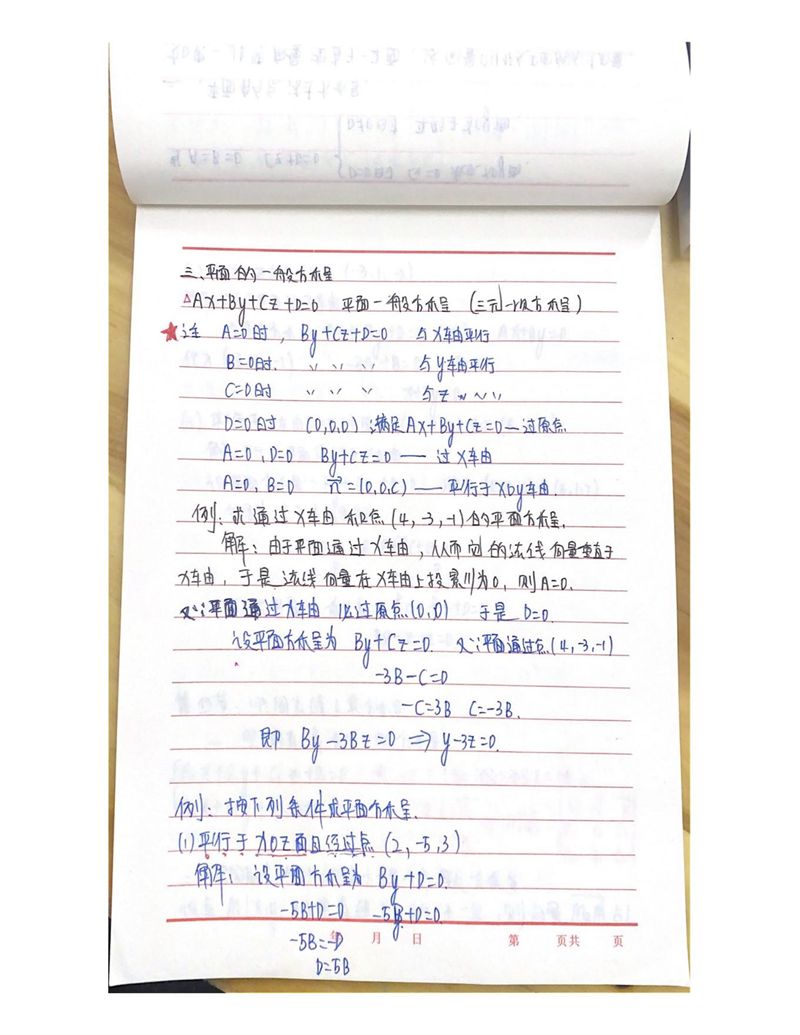 三、平面的一般方程
△Ax+By+Cz+D=0 平面一般方程 (三元一次方程)
★注 A=0时, By+Cz+D=0 与x轴平行
B=0时. 〃 〃 〃 与y轴平行
C=0时 〃 〃 〃 与z 〃 〃 〃
D=0时 (0,0,0) 满足Ax+By+Cz=0—过原点
A=0, D=0 By+Cz=0 — 过x轴
A=0, B=0 n→=(0,0,C) — 平行于xoy轴.
例: 求通过x轴和点(4,-3,-1)的平面方程.
解: 由于平面通过x轴, 从而它的法线向量垂直于
x轴, 于是法线向量在x轴上投影为0, 则A=0.
又∵平面通过x轴 必过原点(0,0) 于是 D=0.
设平面方程为 By+Cz=0. 又∵平面通过点(4,-3,-1)
-3B-C=0
-C=3B C=-3B.
即 By-3Bz=0 ⇒ y-3z=0.
例: 按下列条件求平面方程.
(1)平行于xoz面且经过点(2,-5,3)
解: 设平面方程为 By+D=0.
-5B+D=0 -5B+D=0.
年 月 日 第 页共 页
-5B=-D
D=5B